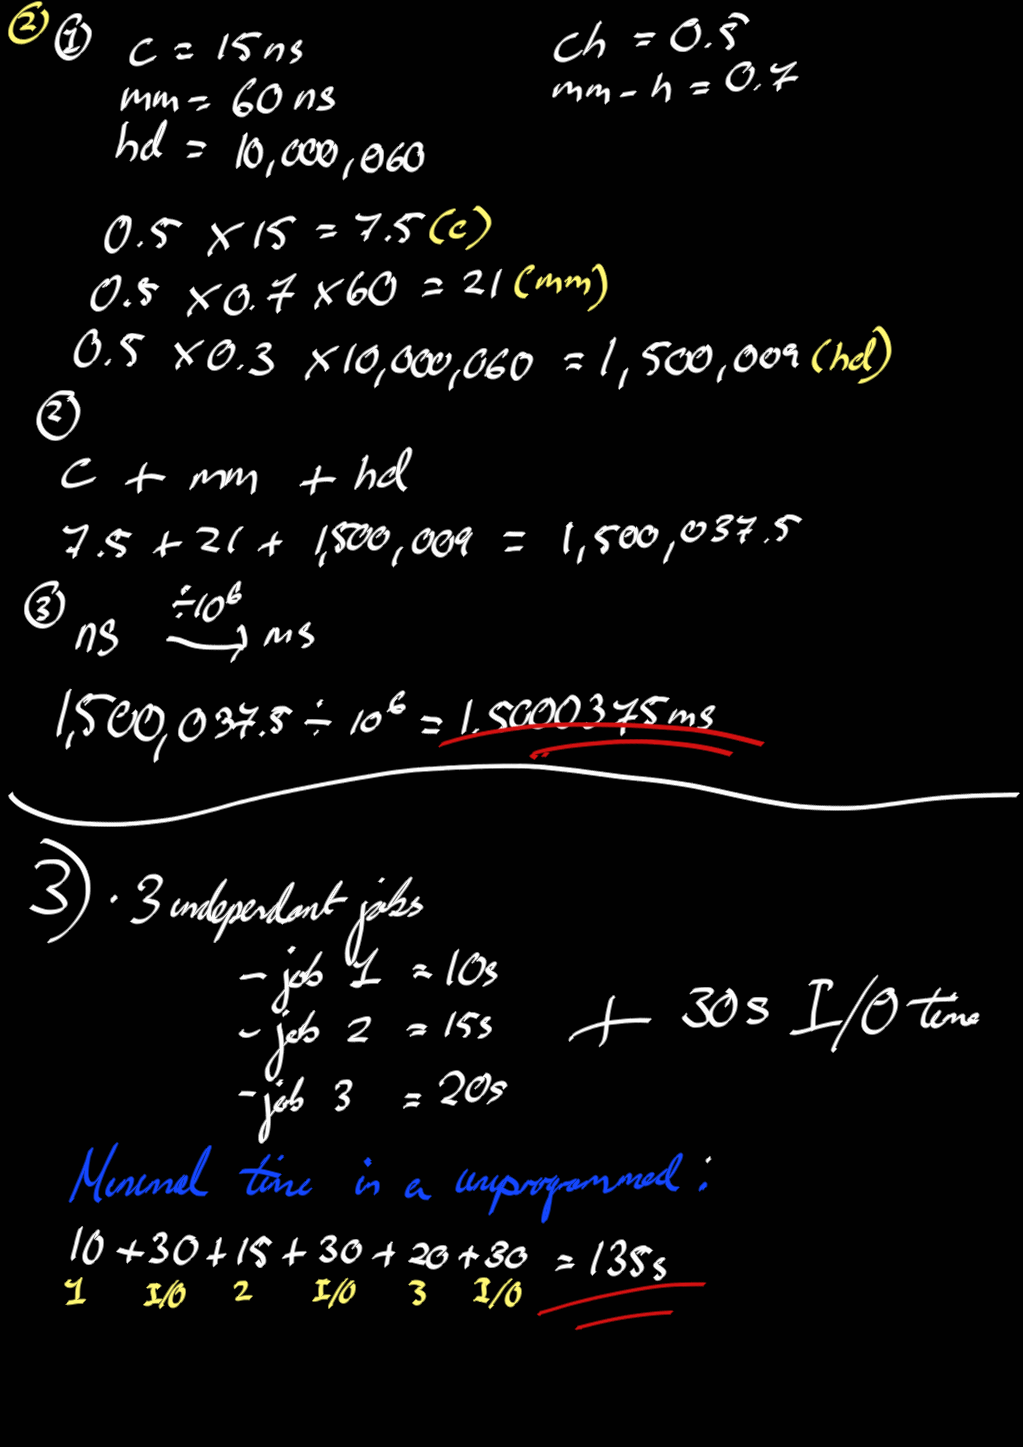 ② ① c = 15ns ch = 0.5
mm = 60 ns mm - h = 0.7
hd = 10,000,060
0.5 × 15 = 7.5 (c)
0.5 × 0.7 × 60 = 21 (mm)
0.5 × 0.3 × 10,000,060 = 1,500,009 (hd)
②
c + mm + hd
7.5 + 21 + 1,500,009 = 1,500,037.5
③ ns ÷10⁶ → ms
1,500,037.5 ÷ 10⁶ = 1.5000375ms
3) · 3 independant jobs
- job 1 = 10s
- job 2 = 15s + 30s I/O time
- job 3 = 20s
Minimal time in a uniprogrammed:
10 + 30 + 15 + 30 + 20 + 30 = 135s
1 I/O 2 I/O 3 I/O